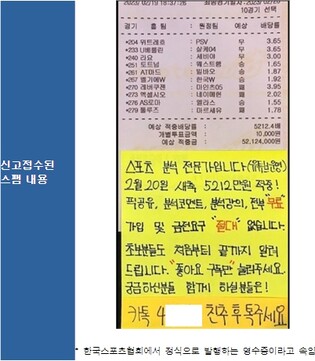 신고접수된
스팸 내용
2023/ 02/19 18:37:26
10경기 선택
경기 홈 팀 : 원정팀 예상 배당률
*204 위트레흐 : PSV 무 3.65
*233 U베를린 : 살케04 무 3.65
*240 리요 : 세비야 무 3.00
*251 토트넘 : 웨스트햄 승 1.65
*261 AT마드 : 빌바오 승 1.87
*267 벨기에W : 한국W 승 1.92
*270 레버쿠젠 : 마인츠05 패 3.95
*273 엑셀시오 : 네이메헌 무 2.02
*276 AS로마 : 엘라스 승 1.55
*279 툴루즈 : 마르세유 패 1.78
예상 적중배당률 : 5212.4배
개별투표금액 : 10,000원
예상 적중금 : 52,124,000원
스포츠 분석 전문가입니다
2월 20일 새축 5212만원 적중!
픽공유, 분석코멘트, 분석강의, 전부 "무료"
가입 및 금전요구 "절대" 없습니다.
초보분들도 처음부터 끝까지 알려
드립니다. "좋아요 구독만" 눌러주세요.
궁금하신분들 함께 하실분들은!
카톡 4 친추 후 톡주세요
* 한국스포츠협회에서 정식으로 발행하는 영수증이라고 속임